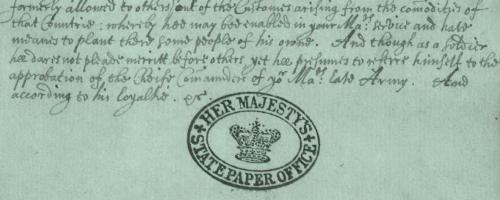 formerly allowed to others out of the Customes arising from the comodities of
that Countrie: whereby hee may bee enabled in your Ma.ts service and have
means to plant there some people of his owne. And though as a Soldier
hee dares not pleade merritt before others, yet hee presumes to referre himself to the
approbation of the Cheife Comander of yo.r Ma.ts late Army. And
according to his loyaltie. &c.
HER MAJESTY'S
STATE PAPER OFFICE